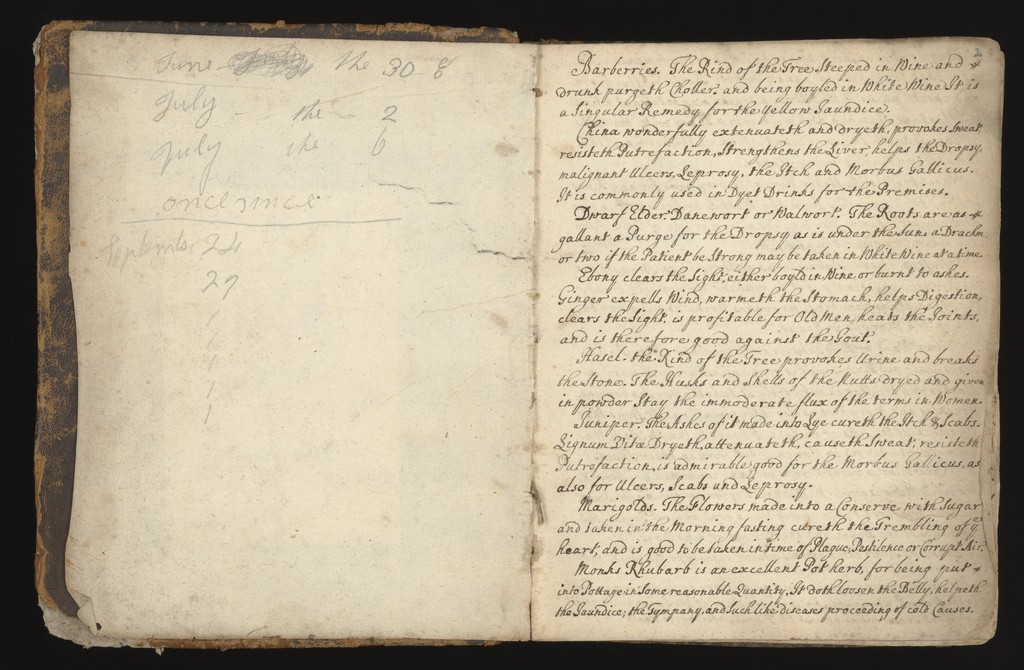 June the 30 8
July the 2
July the 6
once since
September 24
29
1
1
1
1
2
Barberries. The Rind of the Tree Steeped in Wine and
drunk purgeth Choller. and being boyled in White Wine It is
a Singular Remedy for the Yellow Jaundice.
China wonderfully extenuateth and dryeth, provokes Sweat,
resisteth Putrefaction, Strengthens the Liver, helps the Dropsy,
malignant Ulcers, Leprosy, the Itch and Morbus Gallicus.
It is commonly used in Dyet Drinks for the Premises.
Dwarf Elder. Danewort or Walwort. The Roots are as
gallant a Purge for the Dropsy as is under the Sun, a Drachm
or two if the Patient be Strong may be taken in White Wine at a time.
Ebony clears the Sight, either boyld in Wine or burnt to ashes.
Ginger expells Wind, warmeth the Stomach, helps Digestion,
clears the Sight, is profitable for Old Men, heats the Joints,
and is therefore good against the Gout.
Hasel. the Rind of the Tree provokes Urine and breaks
the Stone. The Husks and Shells of the Nutts dryed and given
in powder Stay the immoderate flux of the terms in Women.
Juniper. The Ashes of it made into Lye cureth the Itch & Scabs.
Lignum Vitæ Dryeth, attenuateth, causeth Sweat, resisteth
Putrefaction, is admirable good for the Morbus Gallicus, as
also for Ulcers, Scabs and Leprosy.
Marigolds. The Flowers made into a Conserve with Sugar
and taken in the Morning fasting cureth the Trembling of ye
heart, and is good to be taken in time of Plague, Pestilence or Corrupt Air.
Monks Rhubarb is an excellent Pot herb, for being put
into Pottage in Some reasonable Quantity, It doth loosen the Belly, helpeth
the Jaundice, the Tympany, and Such like diseases proceeding of cold Causes.